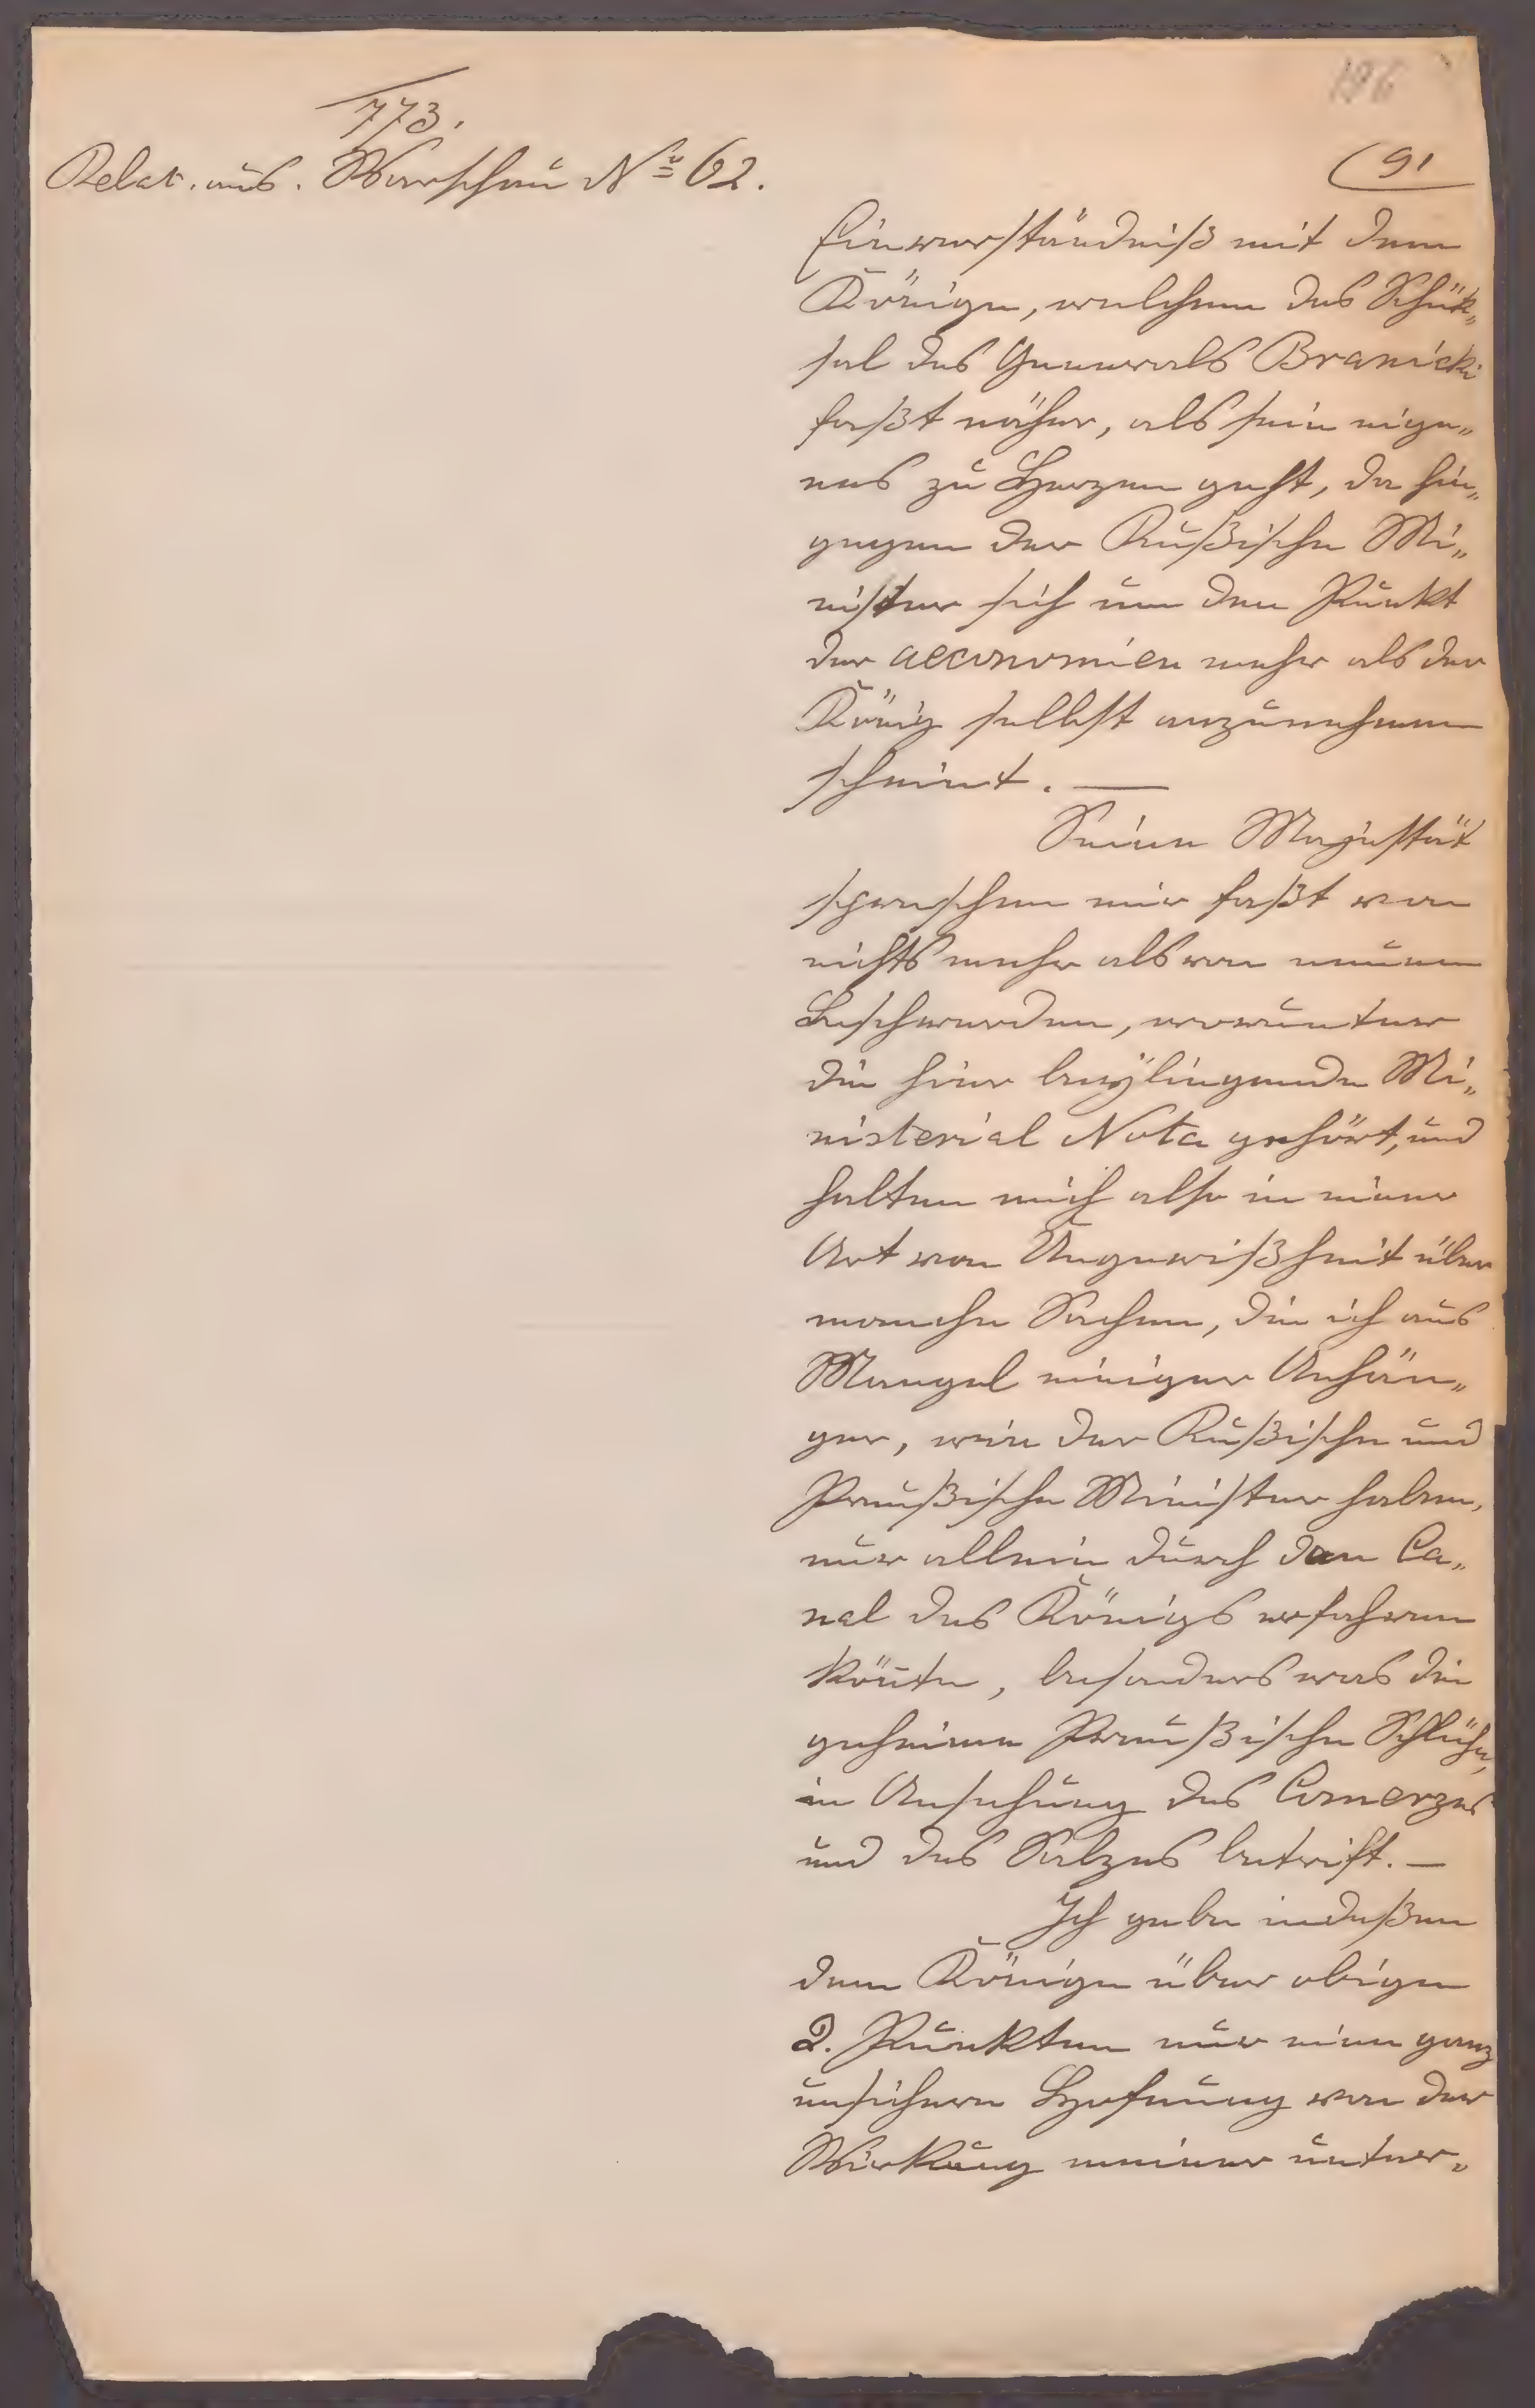 196
773.
Relat. aus. Warschau No 62.
(91
Einverständniß mit dem
Könige, welchem das Schik„
sal des Generals Branicki
faßt näher, als sein eige„
nes zu Herzen geht, da hin„
gegen der Rußische Mi„
nister sich um den Punkt
der aeconomien mehr als der
König selbst anzunehmen
scheint. —
Seine Majestät
sprechen mir faßt von
nichts mehr als von neuen
Beschwerden, worunter
die hier beÿliegende Mi„
nisterial Nota gehört, und
halten mich also in einer
Art von Ungewißheit über
manche Sachen, die ich aus
Mangel einiger Anhän„
ger, wie der Rußische und
Preußische Minister haben,
nur allein durch den Ca„
nal des Königs erfahren
könte, besonders was die
geheime Preußische Schliche,
in Ansehung des Comerzes
und des Salzes betrift. —
Ich gebe indeßen
dem Könige über obige
2. Punkten nur eine ganz
unsichere Hofnung von der
Wirkung meiner unter„